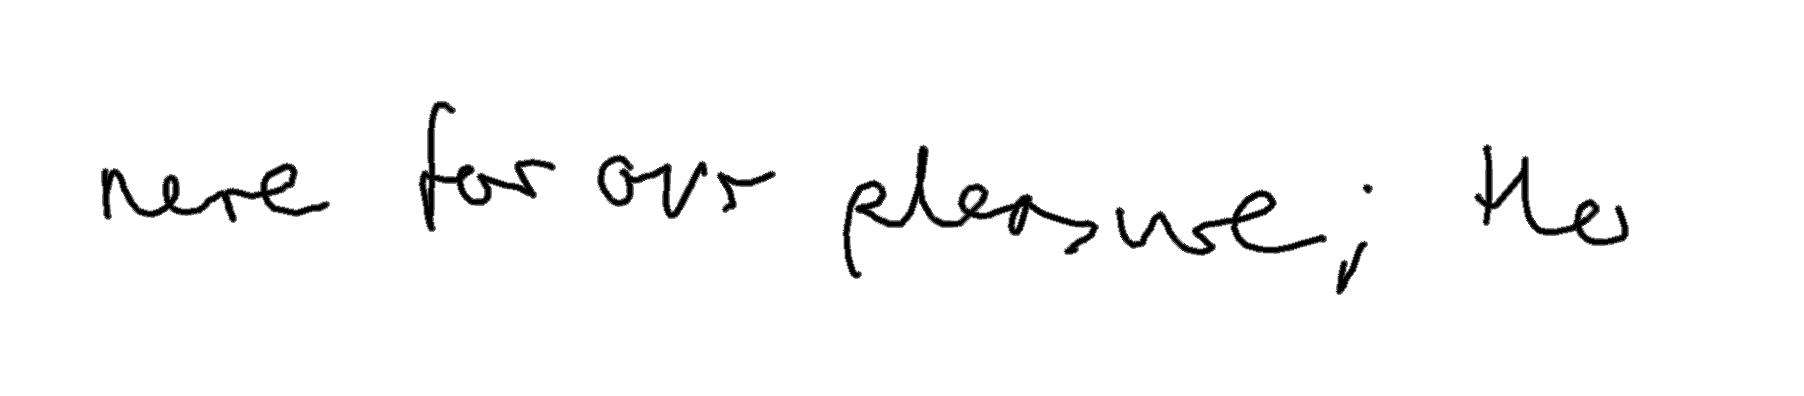 were for our pleasure;